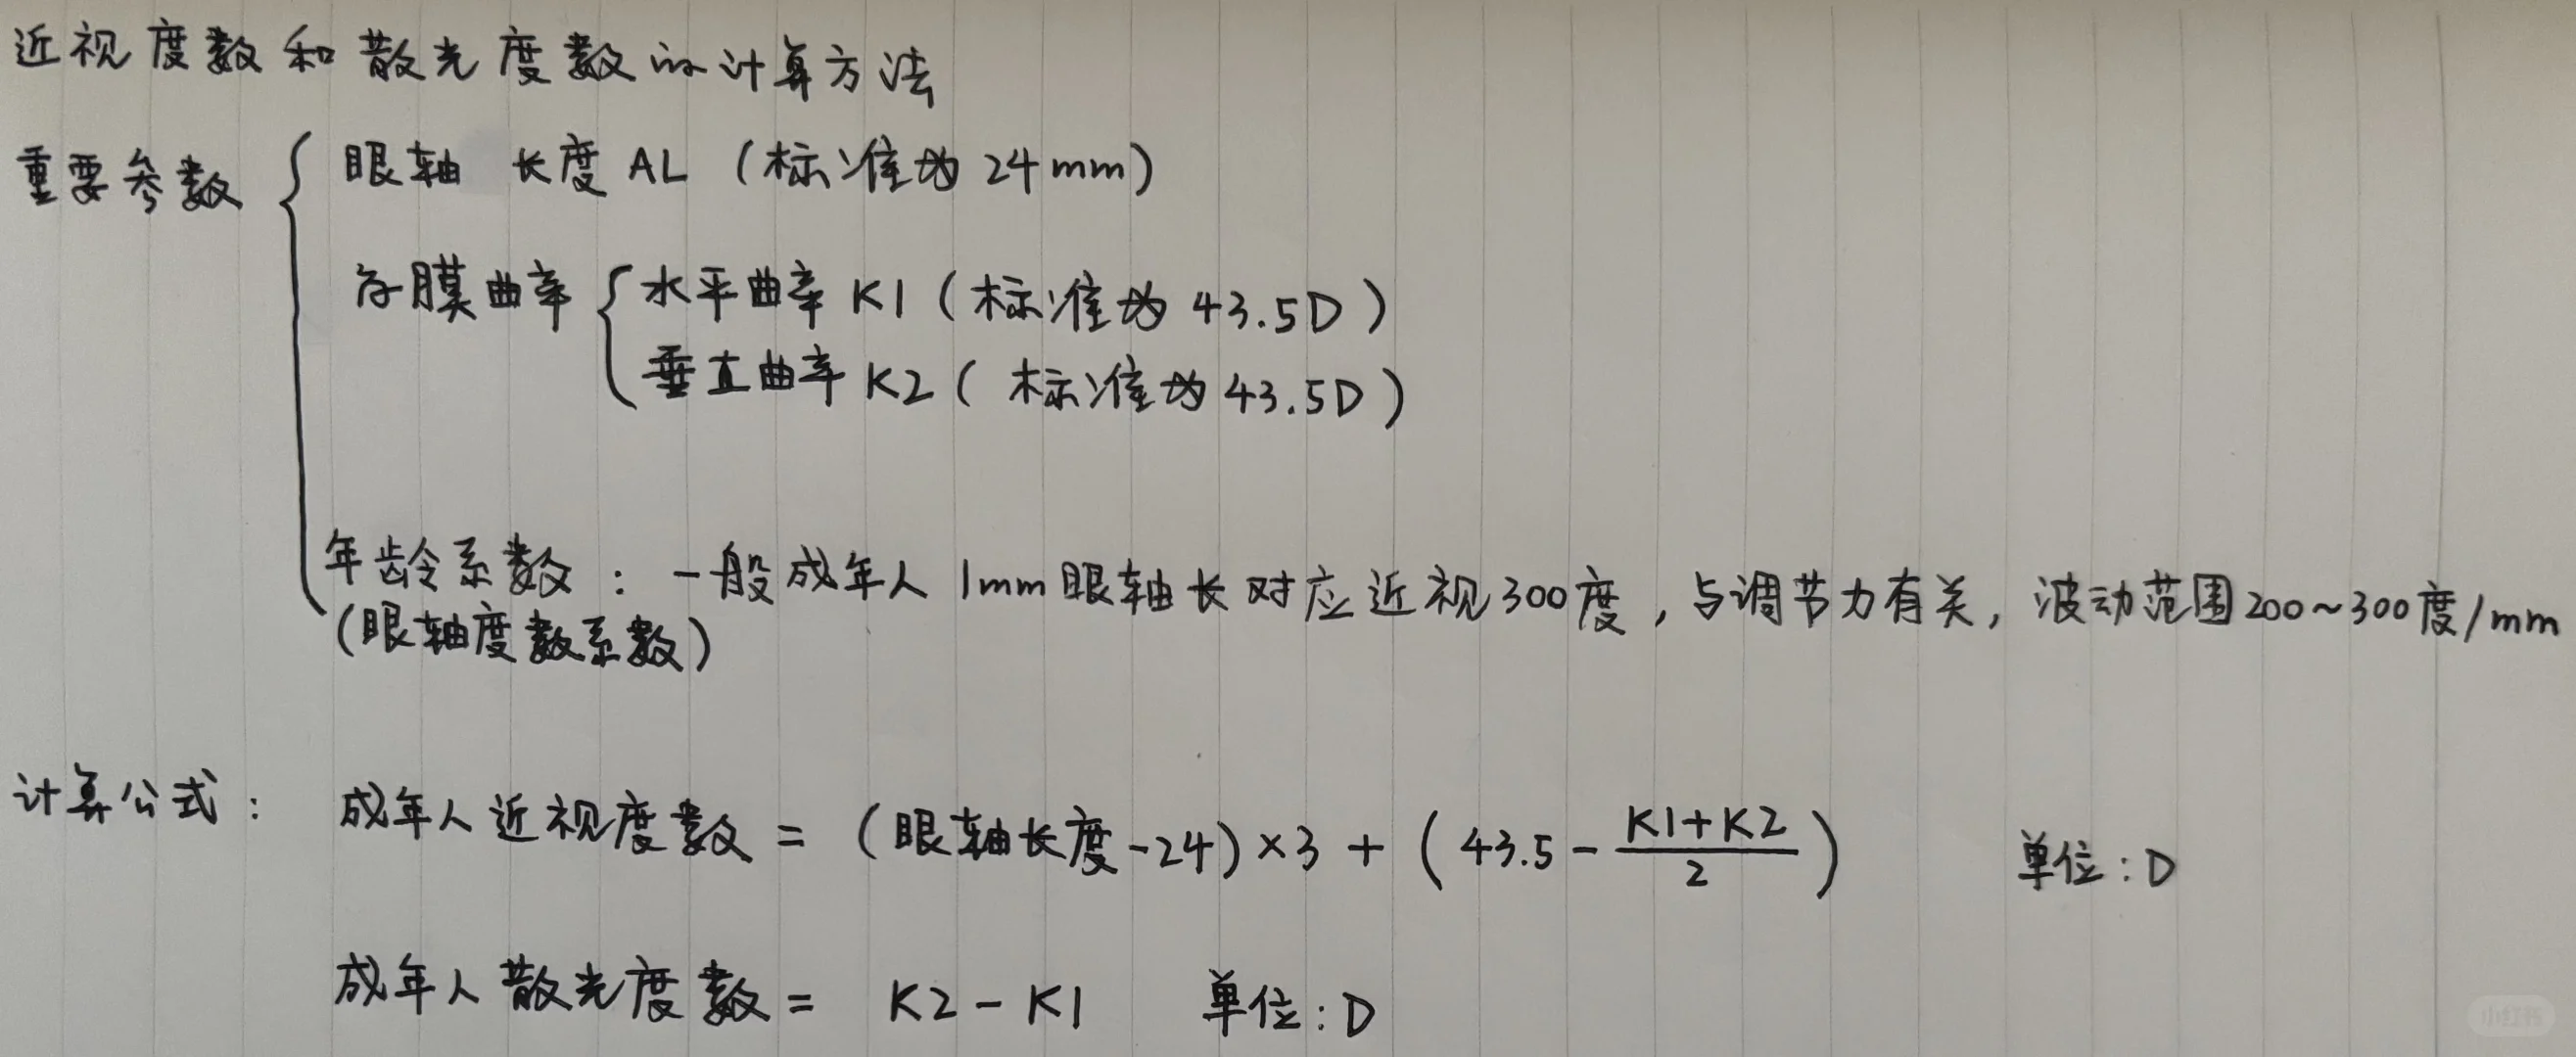 近视度数和散光度数的计算方法
重要参数 { 眼轴 长度 AL (标准为 24mm)
角膜曲率 { 水平曲率 K1 (标准为 43.5D)
垂直曲率 K2 (标准为 43.5D)
年龄系数：一般成年人 1mm眼轴长对应近视300度，与调节力有关，波动范围200~300度/mm
(眼轴度数系数)
计算公式： 成年人近视度数 = (眼轴长度-24)×3 + (43.5 - (K1+K2)/2) 单位：D
成年人散光度数 = K2 - K1 单位：D
小红书